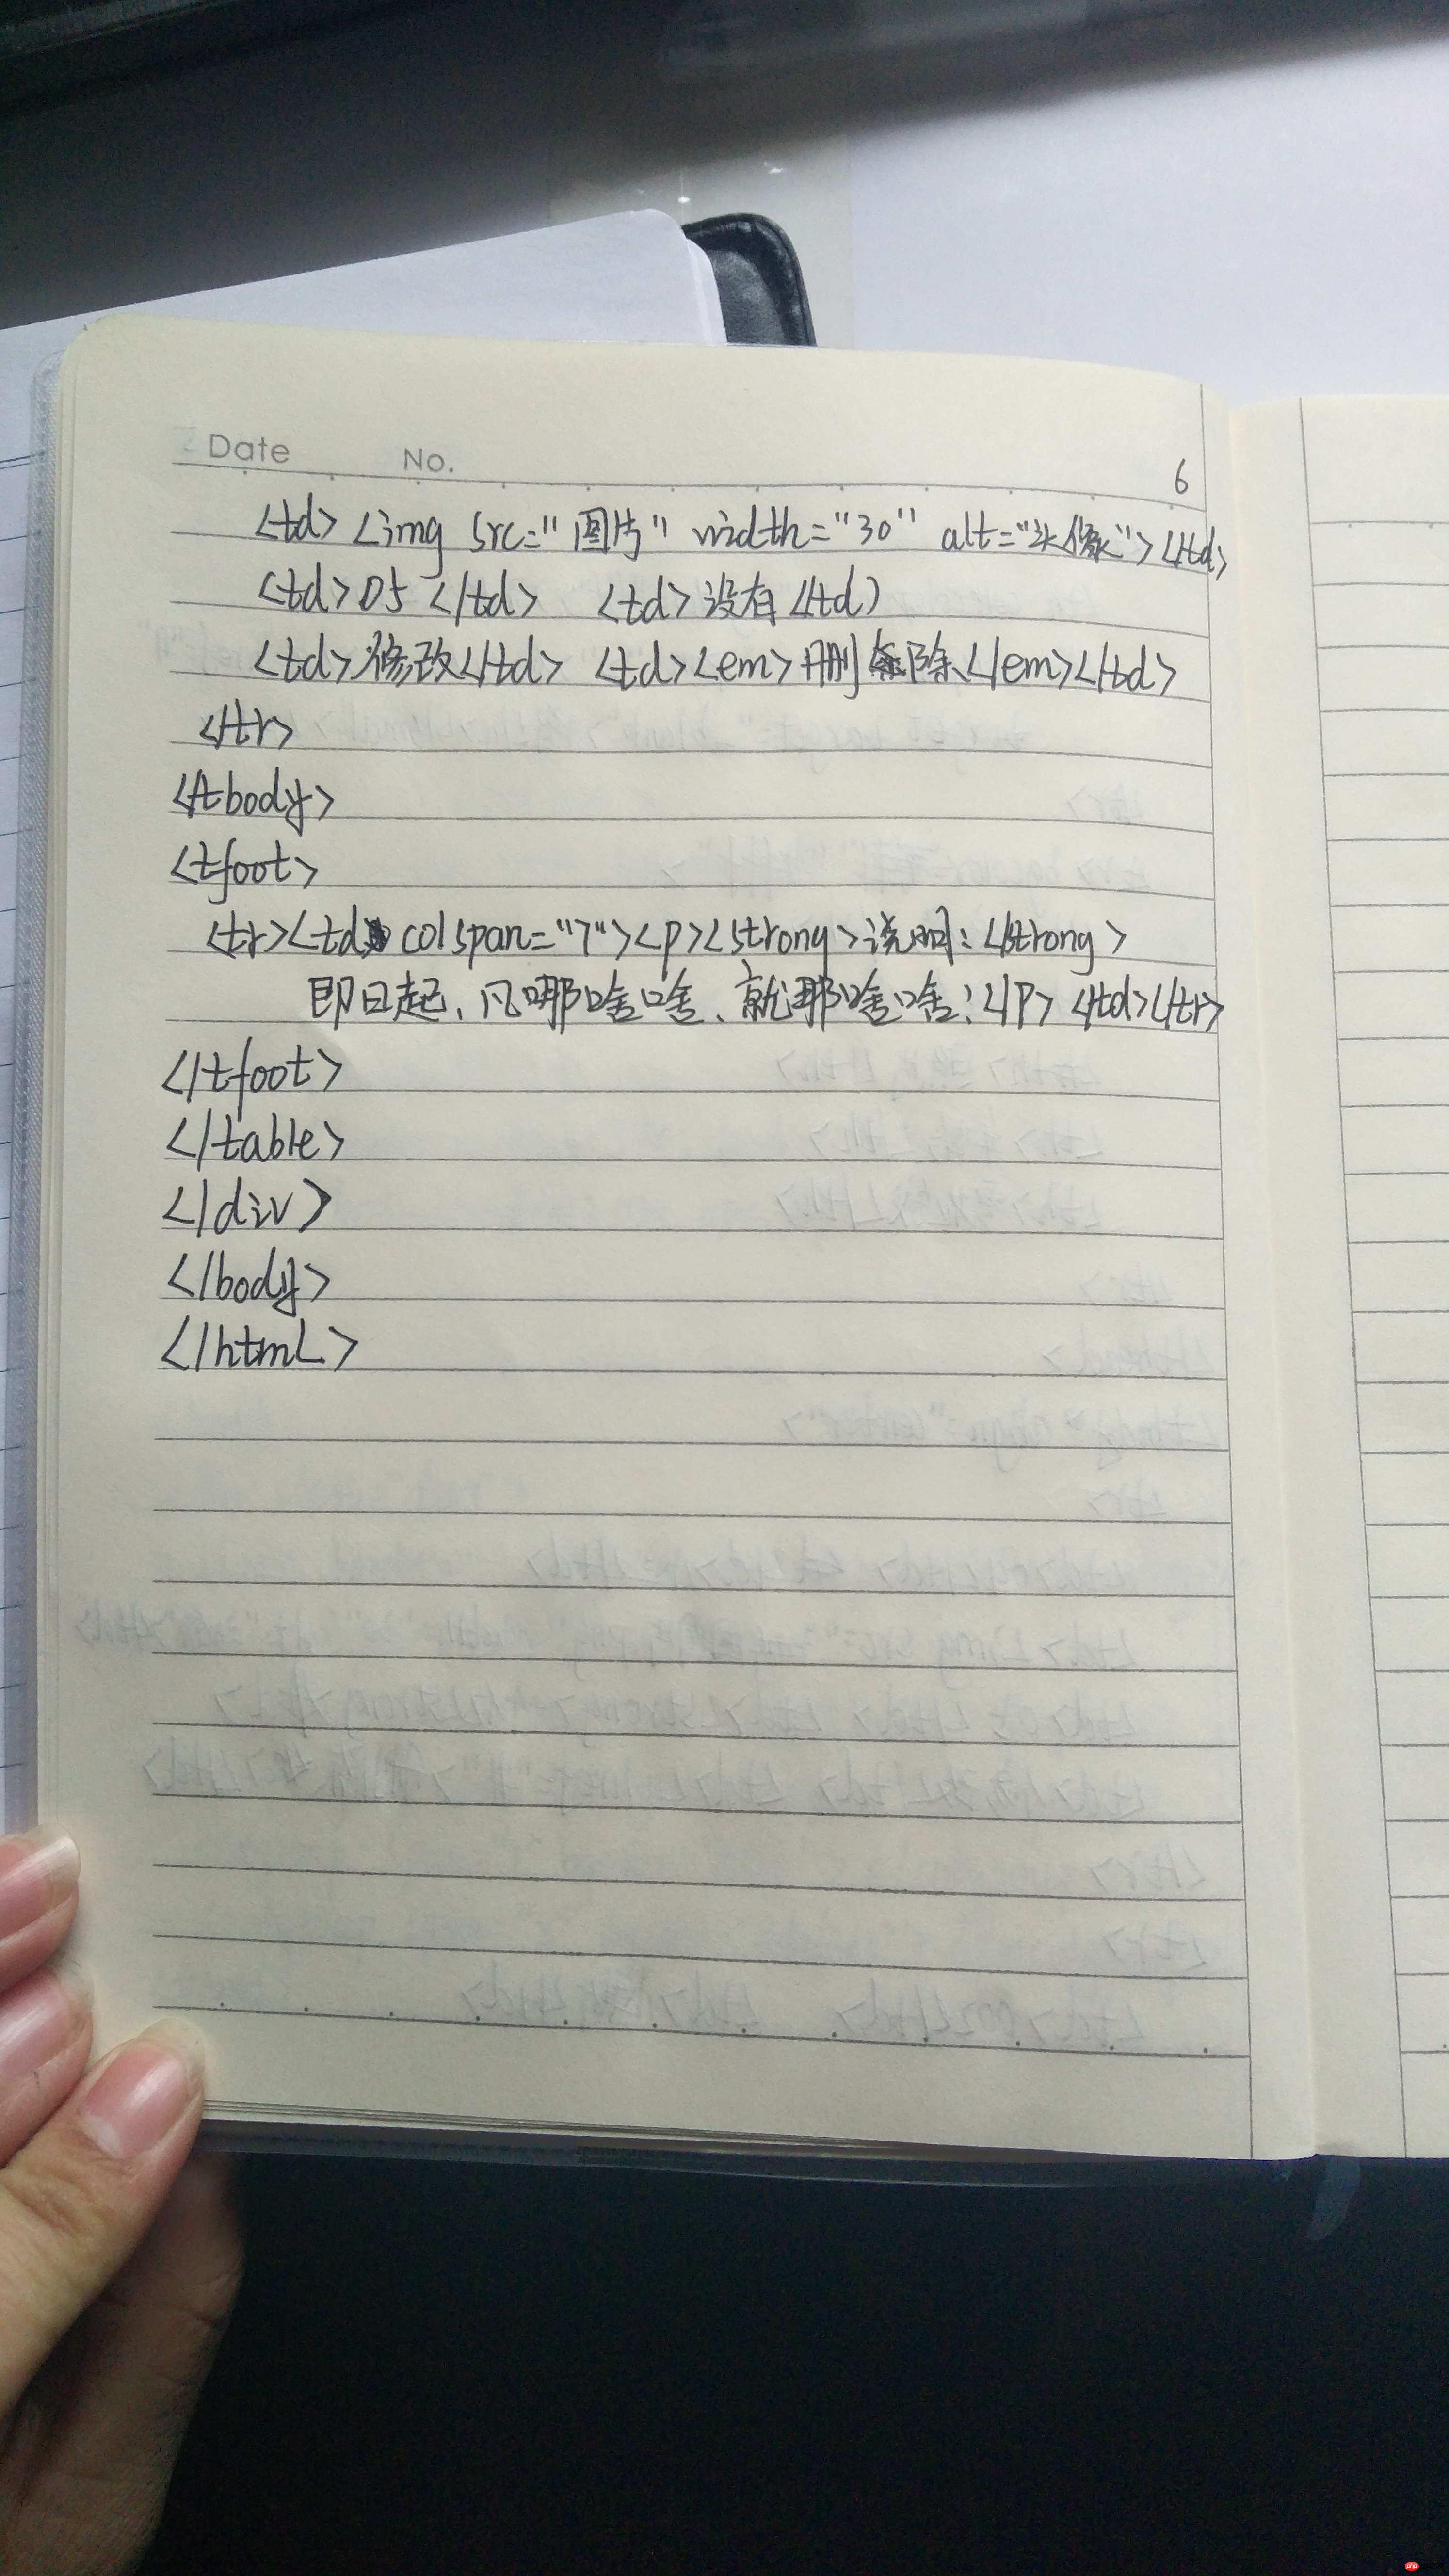 Date No.
6
<td> <img src="图片" width="30" alt="头像"></td>
<td>05</td> <td>没有</td>
<td>修改</td> <td><em>删除</em></td>
</tr>
</tbody>
<tfoot>
<tr><td colspan="7"><p><strong>说明:</strong>
即日起、凡哪啥啥、就那啥啥!</p> </td></tr>
</tfoot>
</table>
</div>
</body>
</html>